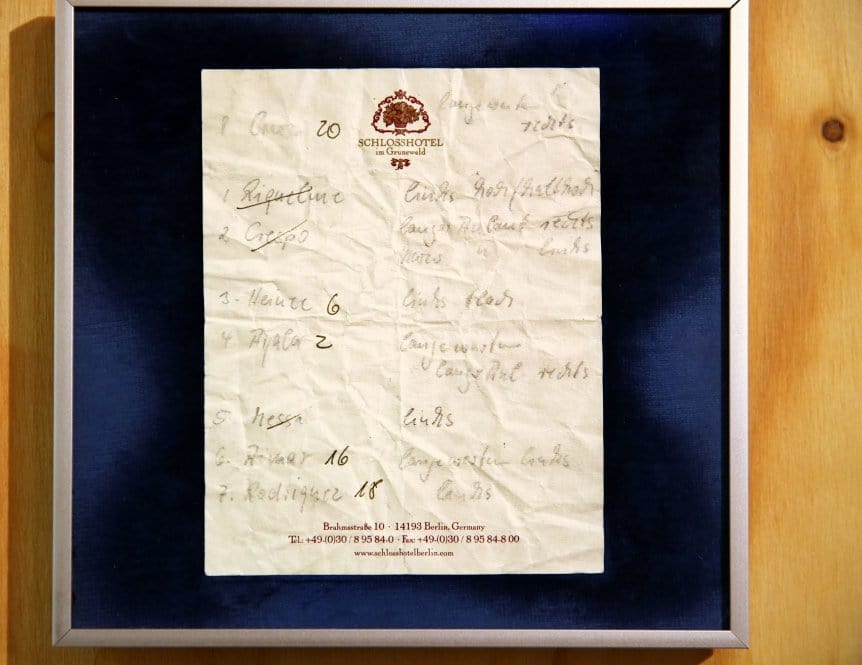 lange warten
1 Cruz 20 rechts
SCHLOSSHOTEL
im Grunewald
1 Riquelme links hoch/halbhoch
2 Crespo langer Anlauf rechts
links
3. Heinze 6 links flach
4 Ayala 2 lange warten
rechts
5 Messi links
6. Aimar 16 lange warten links
7. Rodriguez 18 links
Brahmsstraße 10 · 14193 Berlin, Germany
Tel.: +49-(0)30 / 8 95 84-0 · Fax: +49-(0)30 / 8 95 84-8 00
www.schlosshotelberlin.com